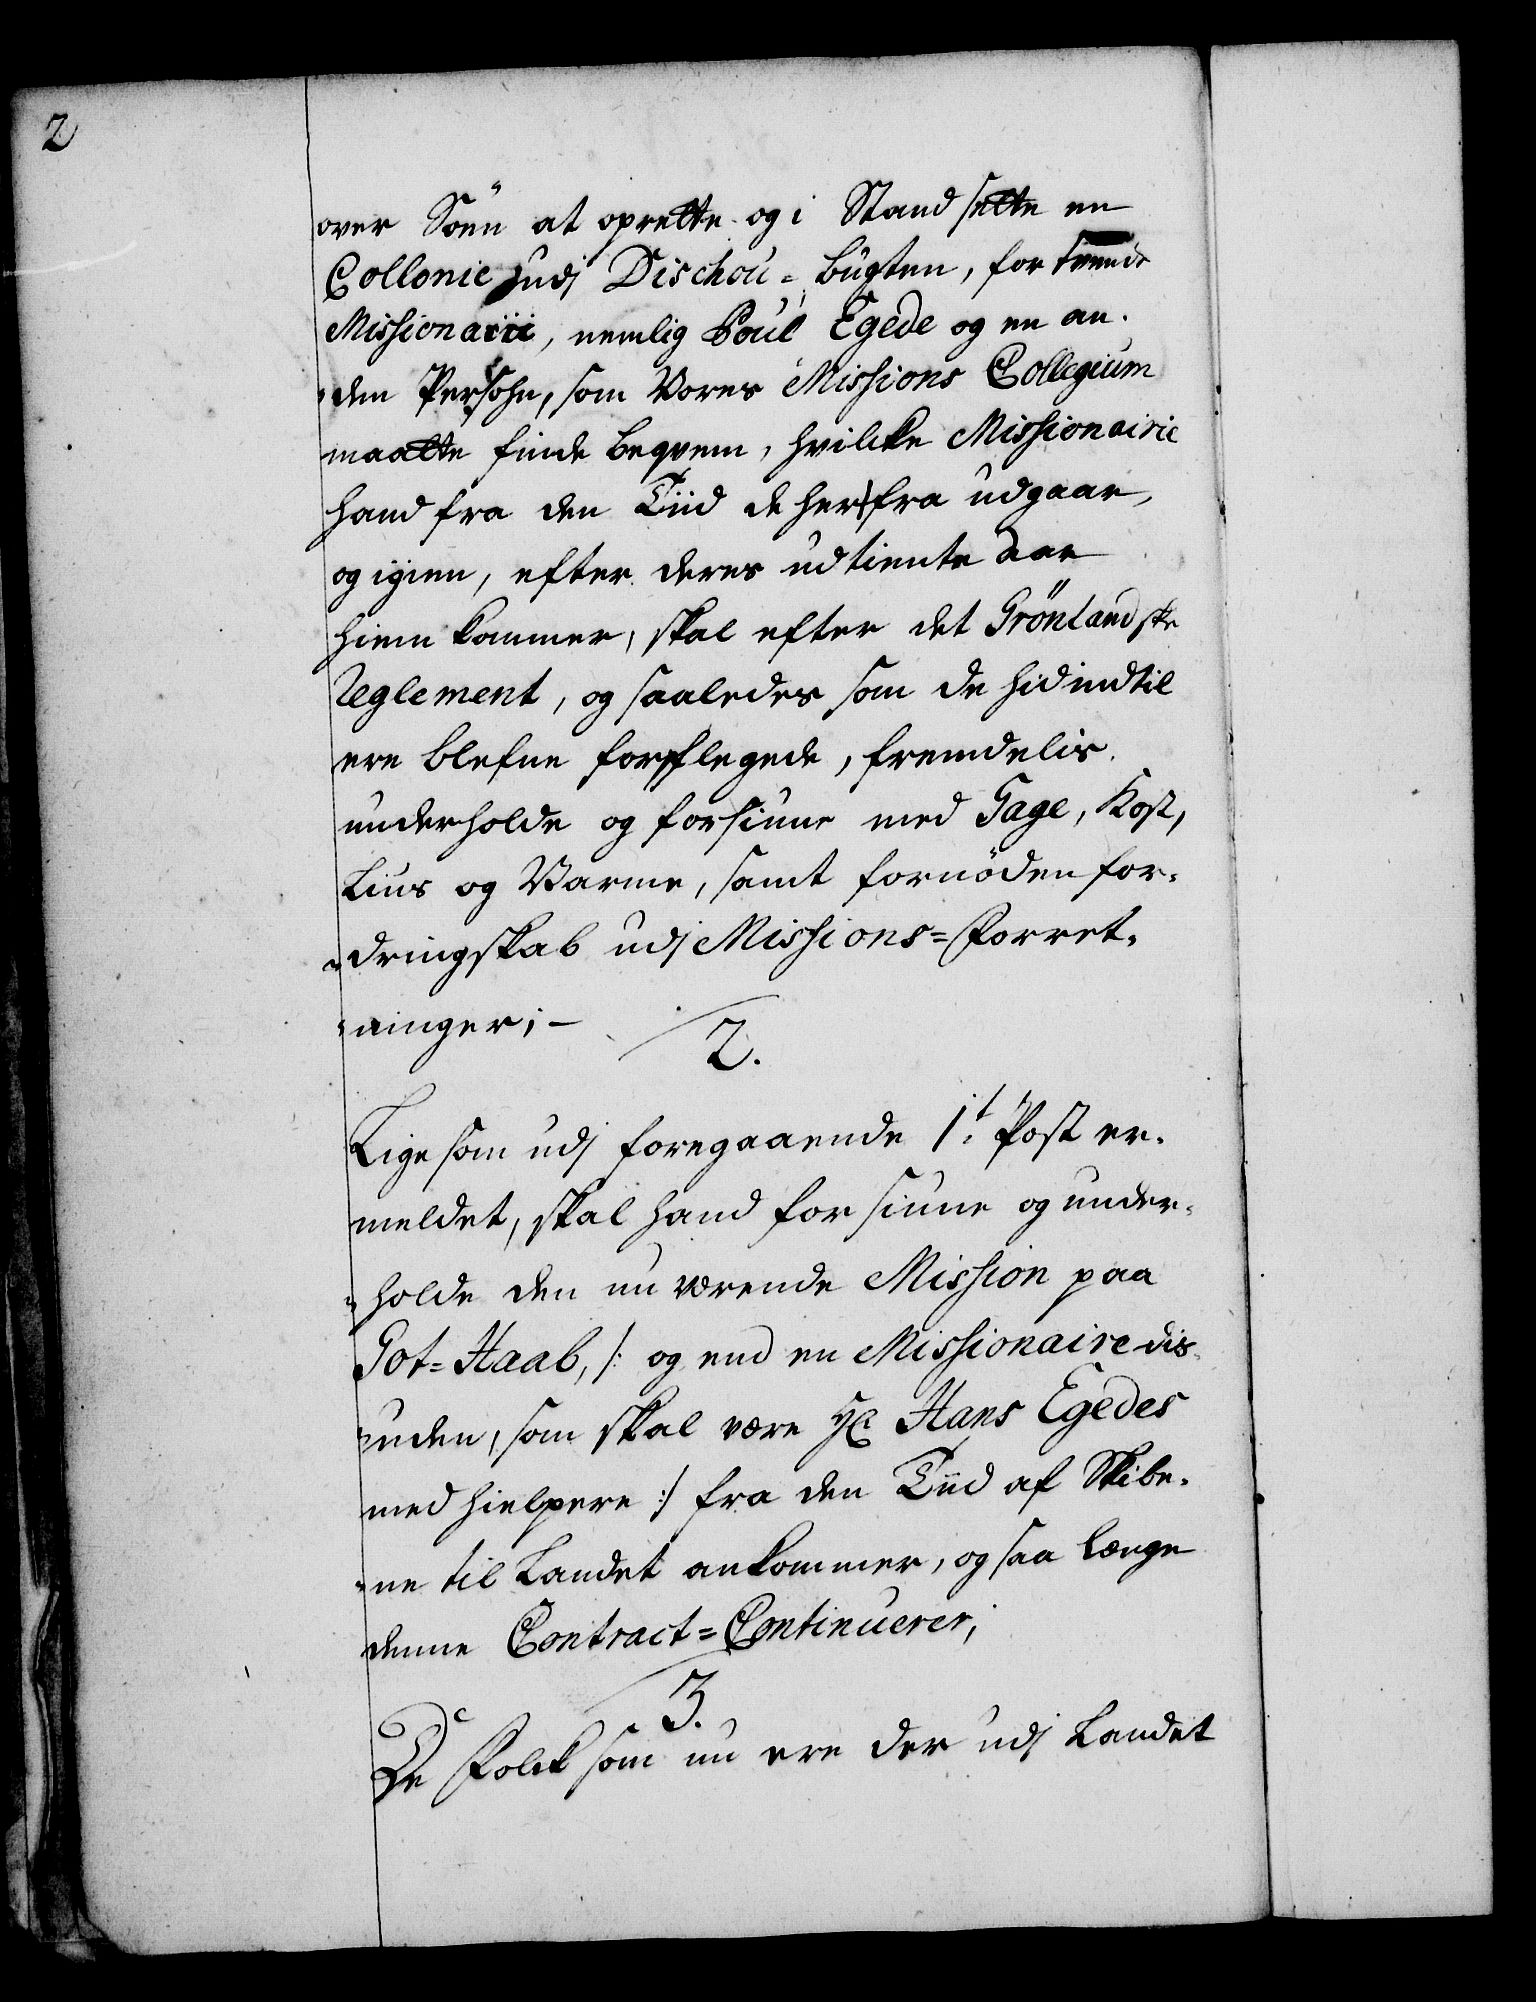 2
over Söen at oprette og i Stand sætte en
Collonie udj Dischou=bugten, for tvende
Missionarii, nemlig Poul Egede og en an-
-den Persohn, som Vores Missions Collegium
maatte finde beqvem, hvilcke Missionairie
hand fra den Tiid de her fra udgaar,
og igien, efter deres udtiente Aar
hiem kommer, skal efter det Grönlandske
Reglement, og saaledes som de hid indtil
ere blefne forpflegede, fremdelis
underholde og forsiune med Gage, Kost,
Lius og Varme, samt fornöden for-
-dringskab udj Missions=Forret-
-ninger; -
2.
Lige som udj foregaaende 1t Post er-
meldet, skal hand forsiune og under-
-holde den nu værende Mission paa
Got=Haab, /: og end en Missionaire des-
-uden, som skal være Hr Hans Egedes
medhielpere :/ fra den Tiid af Skibe-
-ne til Landet ankommer, og saa længe
denne Contract=Continuerer;
3.
De Folck som nu ere der udj Landet